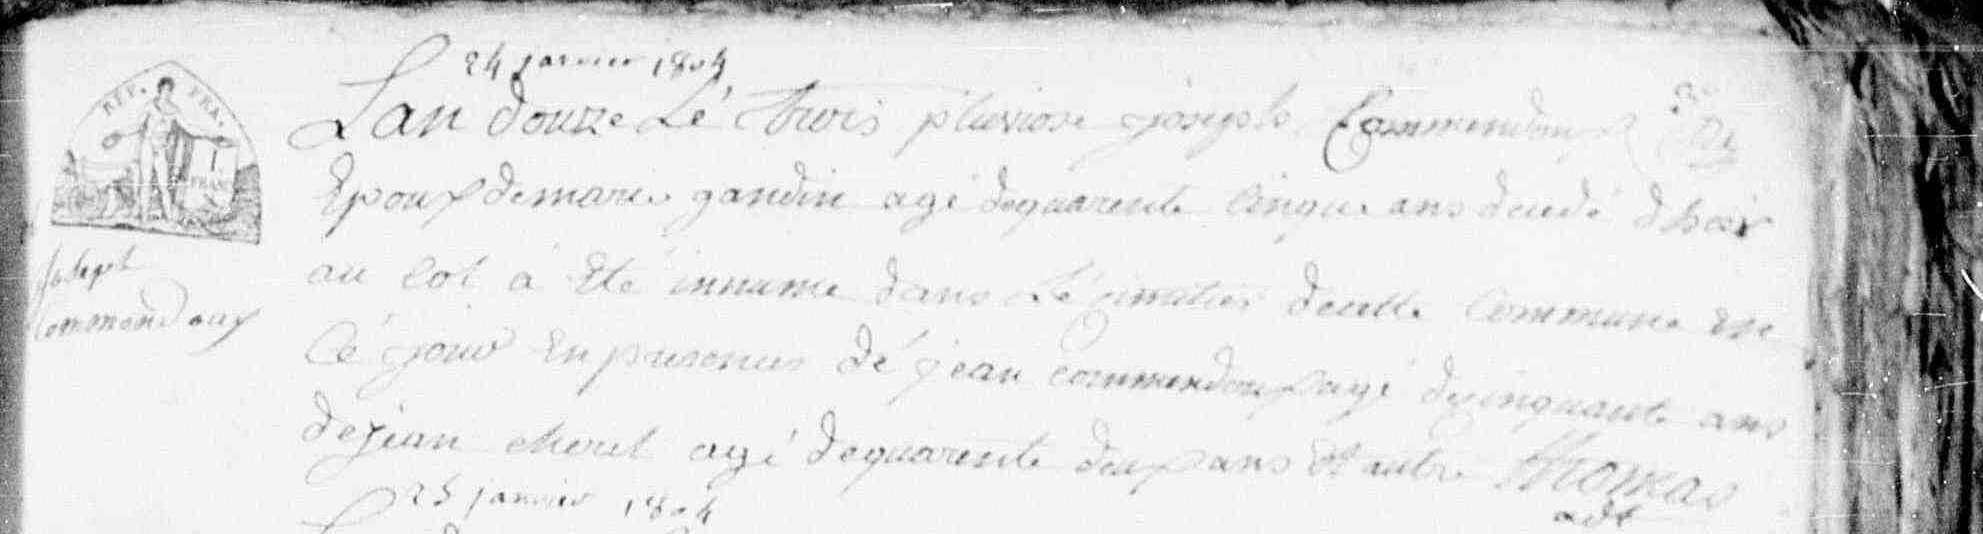 24 janvier 1804
REP. FRA.
Lan douze Lé trois pluviose joseph Commendoux
Epoux demarie gandin agé dequarente Cinque ans decedé dhoir
joseph
au Col a Eté innume dans Lé cimetier decette Commune En
Commendoux
Cé jour En presences dé jean commendoux agé decinquante ans
dejean cherel agé dequarente deux ans Et autre Thomas
adt
25 janvier 1804